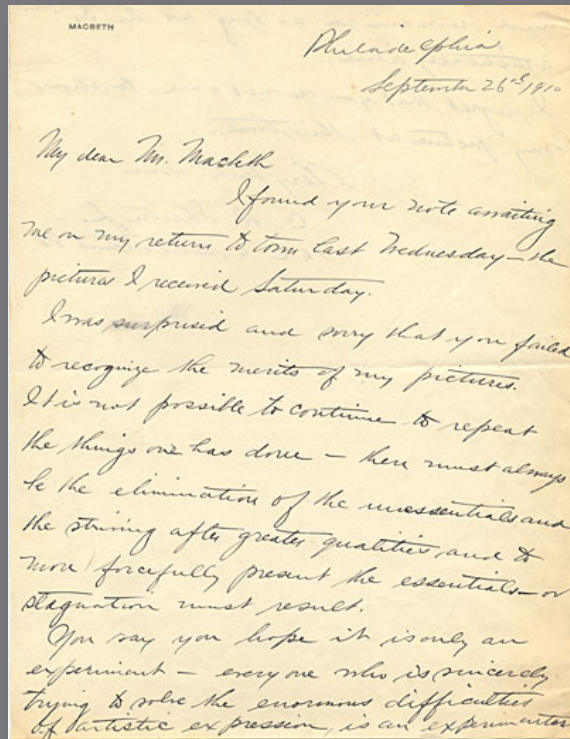 MACBETH
Philadelphia
September 26th, 1910
My dear Mr. Macbeth
I found your note awaiting
me on my return to town last Wednesday — the
pictures I received Saturday.
I was surprised and sorry that you failed
to recognize the merits of my pictures.
It is not possible to continue to repeat
the things one has done — there must always
be the elimination of the unessentials and
the striving after greater qualities and to
more forcefully present the essentials — or
stagnation must result.
You say you hope it is only an
experiment — everyone who is sincerely
trying to solve the enormous difficulties
of artistic expression, is an experimenter